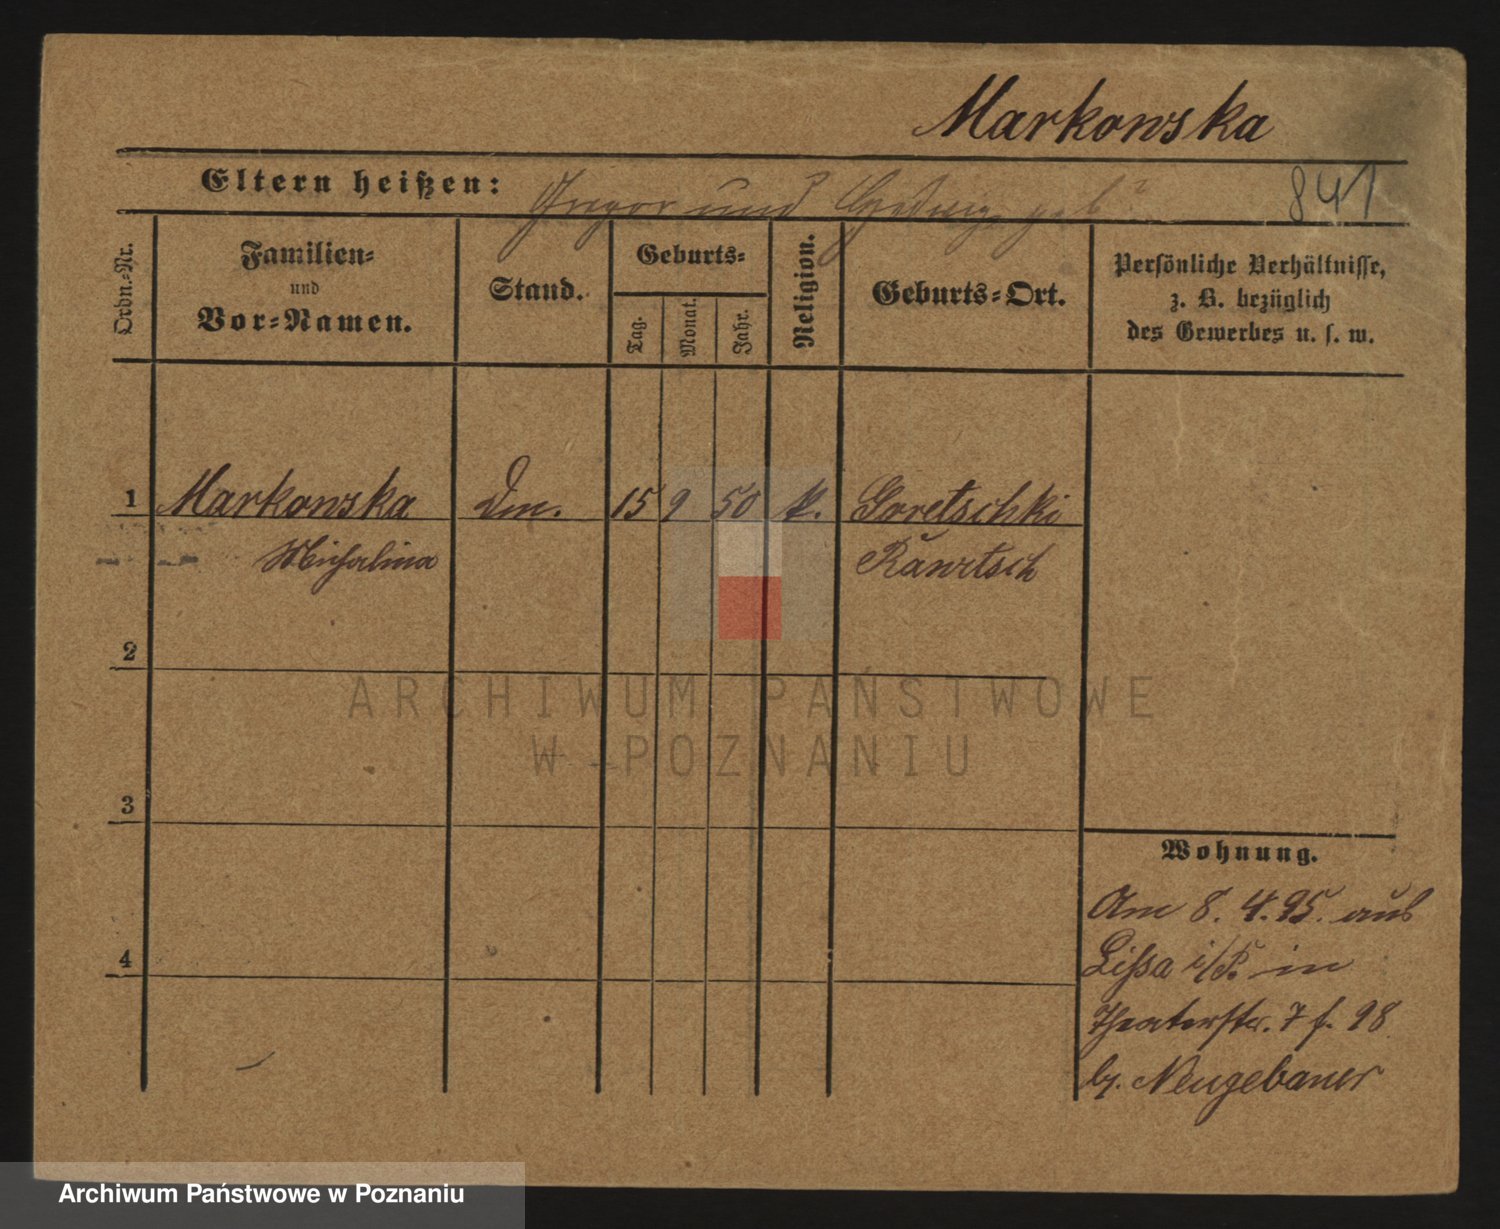 Markowska
Eltern heißen: Gregor und Hedwig geb ?
841
Ordn.-Nr.
Familien-
und
Vor-Namen.
Stand.
Geburts-
Tag.
Monat.
Jahr.
Religion.
Geburts-Ort.
Persönliche Verhältnisse,
z. B. bezüglich
des Gewerbes u. s. w.
1 Markowska 15 9 50 k. Goretschki
Michalina Rawitsch
2
3
4
Wohnung.
Am 8. 4. 95. aus
Lissa i/P. in
Theaterstr. 7 f. 98
by. Neugebauer
ARCHIWUM PAŃSTWOWE
W POZNANIU
Archiwum Państwowe w Poznaniu